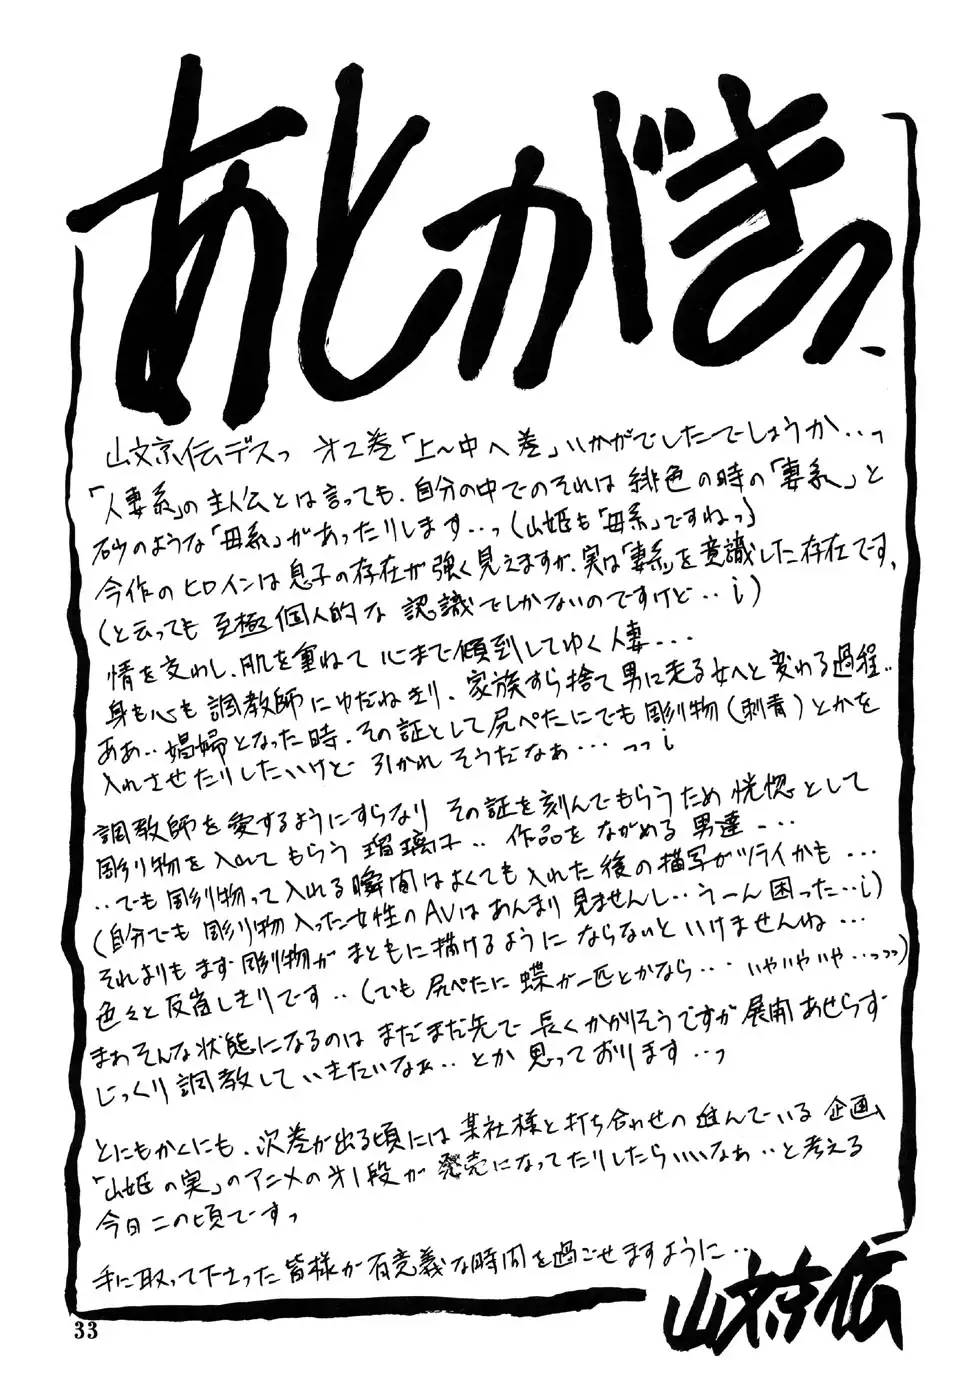 あとがきっ
山文京伝デスっ 才2巻「上〜中へ巻」いかがでしたでしょうか‥っ
「人妻系」の主人公とは言っても、自分の中でのそれは緋色の時の「妻系」と
砂のような「母系」があったりします…っ(山姫も「母系」ですねっ)
今作のヒロインは息子の存在が強く見えますが、実は「妻系」を意識した存在です、
(と云っても至極個人的な認識でしかないのですけど‥i)
情を交わし、肌を重ねて心まで傾到してゆく人妻…
身も心も調教師にゆだねきり、家族すら捨て男に走る女へと変わる過程‥
ああ‥娼婦となった時、その証として尻ぺたにでも彫り物(刺青)とかを
入れさせたりしたいけど引かれそうだなぁ…っっi
調教師を愛するようにすらなりその証を刻んでもらうため恍惚として
彫り物を入れてもらう瑠璃子‥作品をながめる男達…
‥でも彫り物って入れる瞬間はよくても入れた後の描写がツライかも…
(自分でも彫り物入った女性のAVはあんまり見ませんし‥うーん困った‥i)
それよりもまず彫り物がまともに描けるようにならないといけませんね…
色々と反省しきりです‥(でも尻ぺたに蝶が一匹とかなら‥・いやいやいや‥っっっ)
まぁそんな状態になるのはまだまだ先で長くかかりそうですが展開あせらず
じっくり調教していきたいなぁ‥とか思っております‥っ
とにもかくにも、次巻が出る頃には某社様と打ち合わせの進んでいる企画、
「山姫の実」のアニメの才1段が発売になってたりしたらいいなぁ‥と考える
今日この頃ですっ
手に取って下さった皆様が有意義な時間を過ごせますように‥
山文京伝
33